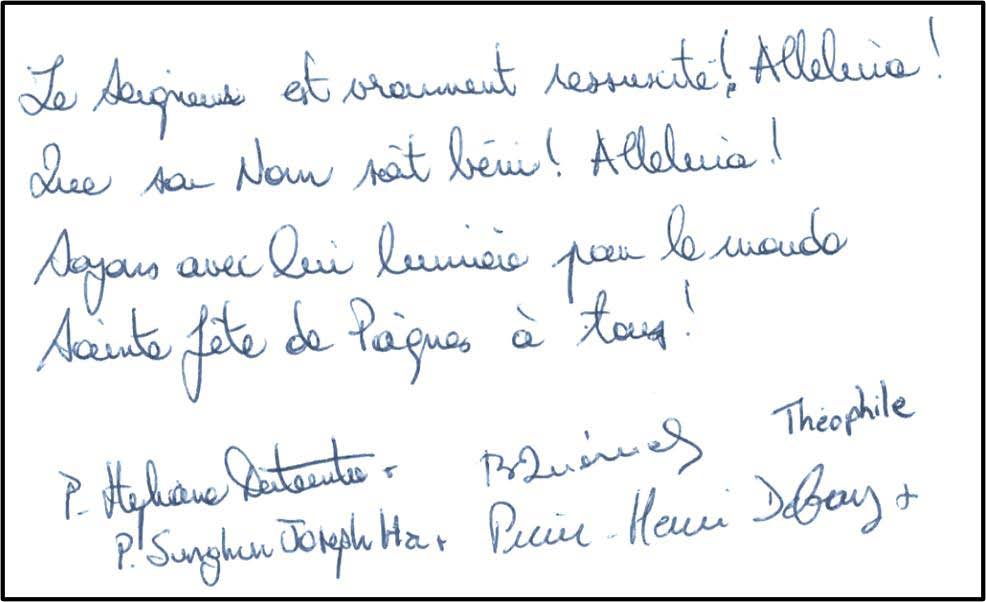 Le Seigneur est vraiment ressuscité! Alleluia!
Que son Nom soit béni! Alleluia!
Soyons avec lui lumière pour le monde
Sainte fête de Pâques à tous!
Théophile
P. Stéphane
P. Sunghun Joseph Ha +
Pierre-Henri Debray +